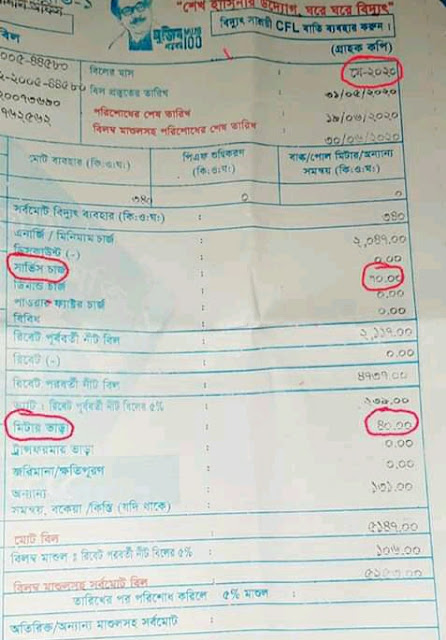 "শেখ হাসিনার উদ্যোগ, ঘরে ঘরে বিদ্যুৎ"
বিদ্যুৎ সাশ্রয়ী CFL বাতি ব্যবহার করুন।
মুজিব
100
বিল
(গ্রাহক কপি)
বিলের মাস : মে-২০২০
বিল প্রস্তুতের তারিখ : ৩১/০৫/২০২০
পরিশোধের শেষ তারিখ : ১৯/০৬/২০২০
বিলম্ব মাশুলসহ পরিশোধের শেষ তারিখ : ৩০/০৬/২০২০
মোট ব্যবহার (কি:ও:ঘ:)
পিএফ শুদ্ধিকরণ (কি:ও:ঘ:)
বাল্ক/পোল মিটার/অন্যান্য সমন্বয় (কি:ও:ঘ:)
৩৪০ ০ ০
সর্বমোট বিদ্যুৎ ব্যবহার (কি:ও:ঘ:) : ৩৪০
এনার্জি / মিনিমাম চার্জ : ২,০৪৭.০০
ডিসকাউন্ট (-) ০.০০
সার্ভিস চার্জ : ৭০.০০
ডিমান্ড চার্জ : ০.০০
পাওয়ার ফ্যাক্টর চার্জ : ০.০০
বিবিধ :
রিবেট পূর্ববর্তী নীট বিল : ২,১১৭.০০
রিবেট (-) : ০.০০
রিবেট পরবর্তী নীট বিল : ৪৭৩৭.০০
ভ্যাট : রিবেট পূর্ববর্তী নীট বিলের ৫% : ২৩৯.০০
মিটার ভাড়া : ৪০.০০
ট্রান্সফরমার ভাড়া : ০.০০
জরিমানা/ক্ষতিপূরণ : ০.০০
অন্যান্য : ১৩১.০০
সমন্বয়, বকেয়া /কিস্তি (যদি থাকে)
মোট বিল : ৫১৪৭.০০
বিলম্ব মাশুল : রিবেট পরবর্তী নীট বিলের ৫% : ১০৬.০০
বিলম্ব মাশুলসহ সর্বমোট বিল :
তারিখের পর পরিশোধ করিলে ৫% মাশুল :
অতিরিক্ত/অন্যান্য মাশুলসহ সর্বমোট :